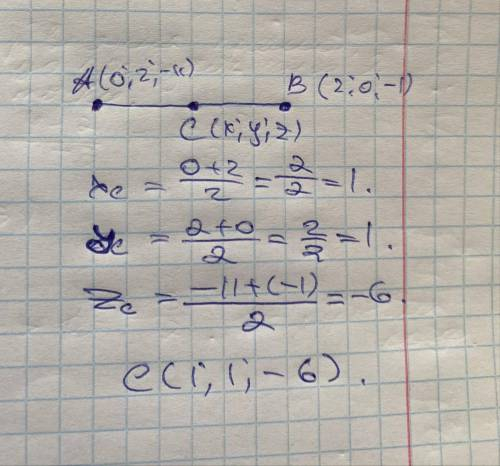 A(0; 2; -11) B (2; 0; -1)
C (x; y; z)
x_c = \frac{0+2}{2} = \frac{2}{2} = 1.
y_c = \frac{2+0}{2} = \frac{2}{2} = 1.
z_c = \frac{-11+(-1)}{2} = -6.
C (1; 1; -6).